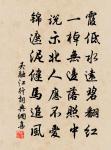 霞低水遠碧翻紅
一棹無邊落照中
說示北人應不愛
錦遮泥健馬追風
吳融江行詞典網